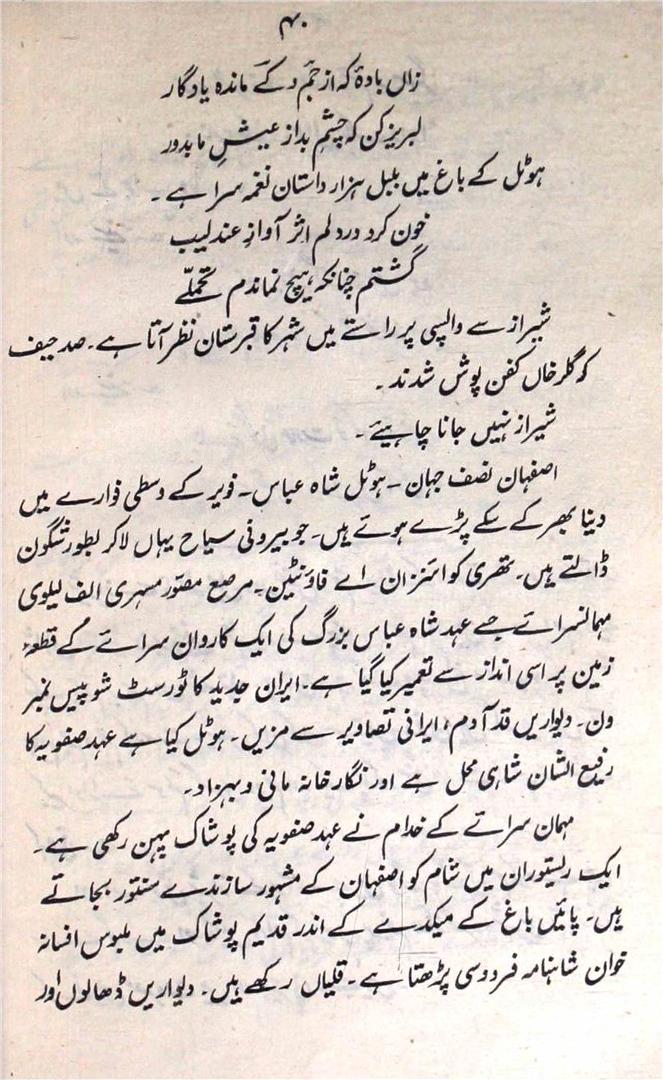 ۴۰
زاں بادۂ کہ از جَم و کَے ماندہ یادگار
لبریز کن کہ چشمِ بد از عیشِ ما بدور
ہوٹل کے باغ میں بلبل ہزار داستان نغمہ سرا ہے۔
خون کرد دردلم اثر آوازِ عندلیب
گشتم چنانکہ ہیچ نماندم تحمّلے
شیراز سے واپسی پر راستے میں شہر کا قبرستان نظر آتا ہے۔ صد حیف
کہ گلرخاں کفن پوش شدند۔
شیراز نہیں جانا چاہیئے۔
اصفہان نصف جہان۔ ہوٹل شاہ عباس۔ فویر کے وسطی فوارے میں
دینا بھر کے سکے پڑے ہوتے ہیں۔ جو بیرونی سیاح یہاں لاکر بطور شگون
ڈالتے ہیں۔ تھری کوائنز ان اے فاؤنٹین۔ مرصع مصّور مسہری الف لیلوی
مہمانسرائے جسے عہد شاہ عباس بزرگ کی ایک کاروان سرائے کے قطعۂ
زمین پر اسی انداز سے تعمیر کیا گیا ہے۔ ایران جدید کا ٹورسٹ شو پیس نمبر
ون۔ دیواریں قد آدم، ایرانی تصاویر سے مزیں۔ ہوٹل کیا ہے عہد صفویہ کا
رفیع الشان شاہی محل ہے اور نگار خانہ مانی و بہزاد۔
مہمان سرائے کے خدام نے عہد صفویہ کی پوشاک پہن رکھی ہے۔
ایک ریستوران میں شام کو اصفہان کے مشہور سازندے سنتور بجاتے
ہیں۔ پائیں باغ کے میکدے کے اندر قدیم پوشاک میں ملبوس افسانہ
خوان شاہنامہ فردوسی پڑھتا ہے۔ قلیاں رکھے ہیں۔ دیواریں ڈھالوں اور